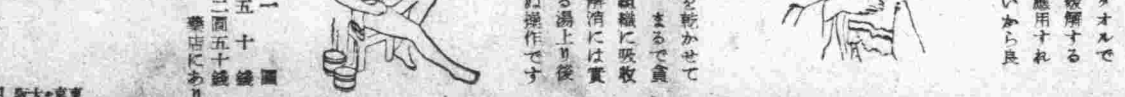 タオルで
緩解する
應用すれ
いから良
を乾かせて
まるで貪
組織に吸收
解消には實
る湯上り後
ぬ操作です
一圓
五十錢
二圓五十錢
藥店にあり